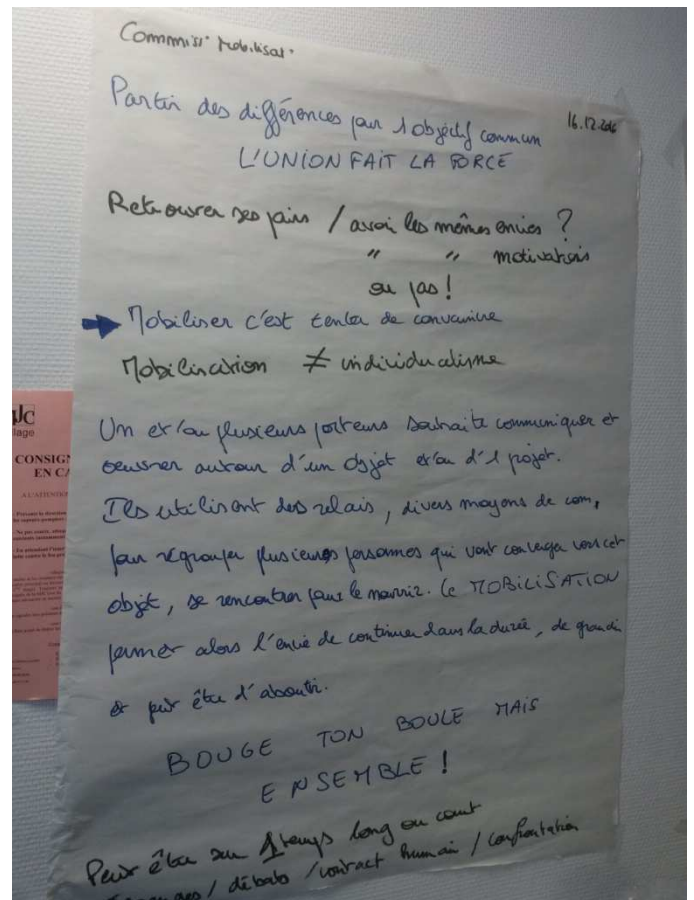 Commiss° Mobilisat°
16.12.2016
Partir des différences pour 1 objectif commun
L'UNION FAIT LA FORCE
Retrouver ses pairs / avoir les mêmes envies ?
" " motivations
ou pas !
→ Mobiliser c'est tenter de convaincre
Mobilisation ≠ individualisme
Un et/ou plusieurs porteurs souhaite communiquer et
oeuvrer autour d'un objet et/ou d'1 projet.
Ils utilisent des relais, divers moyens de com,
pour regrouper plusieurs personnes qui vont converger vers cet
objet, se rencontrer pour le nourrir. Ce MOBILISATION
permet alors l'envie de continuer dans la durée, de grandir
et peut être d'aboutir.
BOUGE TON BOULE MAIS
ENSEMBLE !
Peut être sur 1 temps long ou court
/ débats / contact humain / confrontation
JC
lage
CONSIGN
EN CA